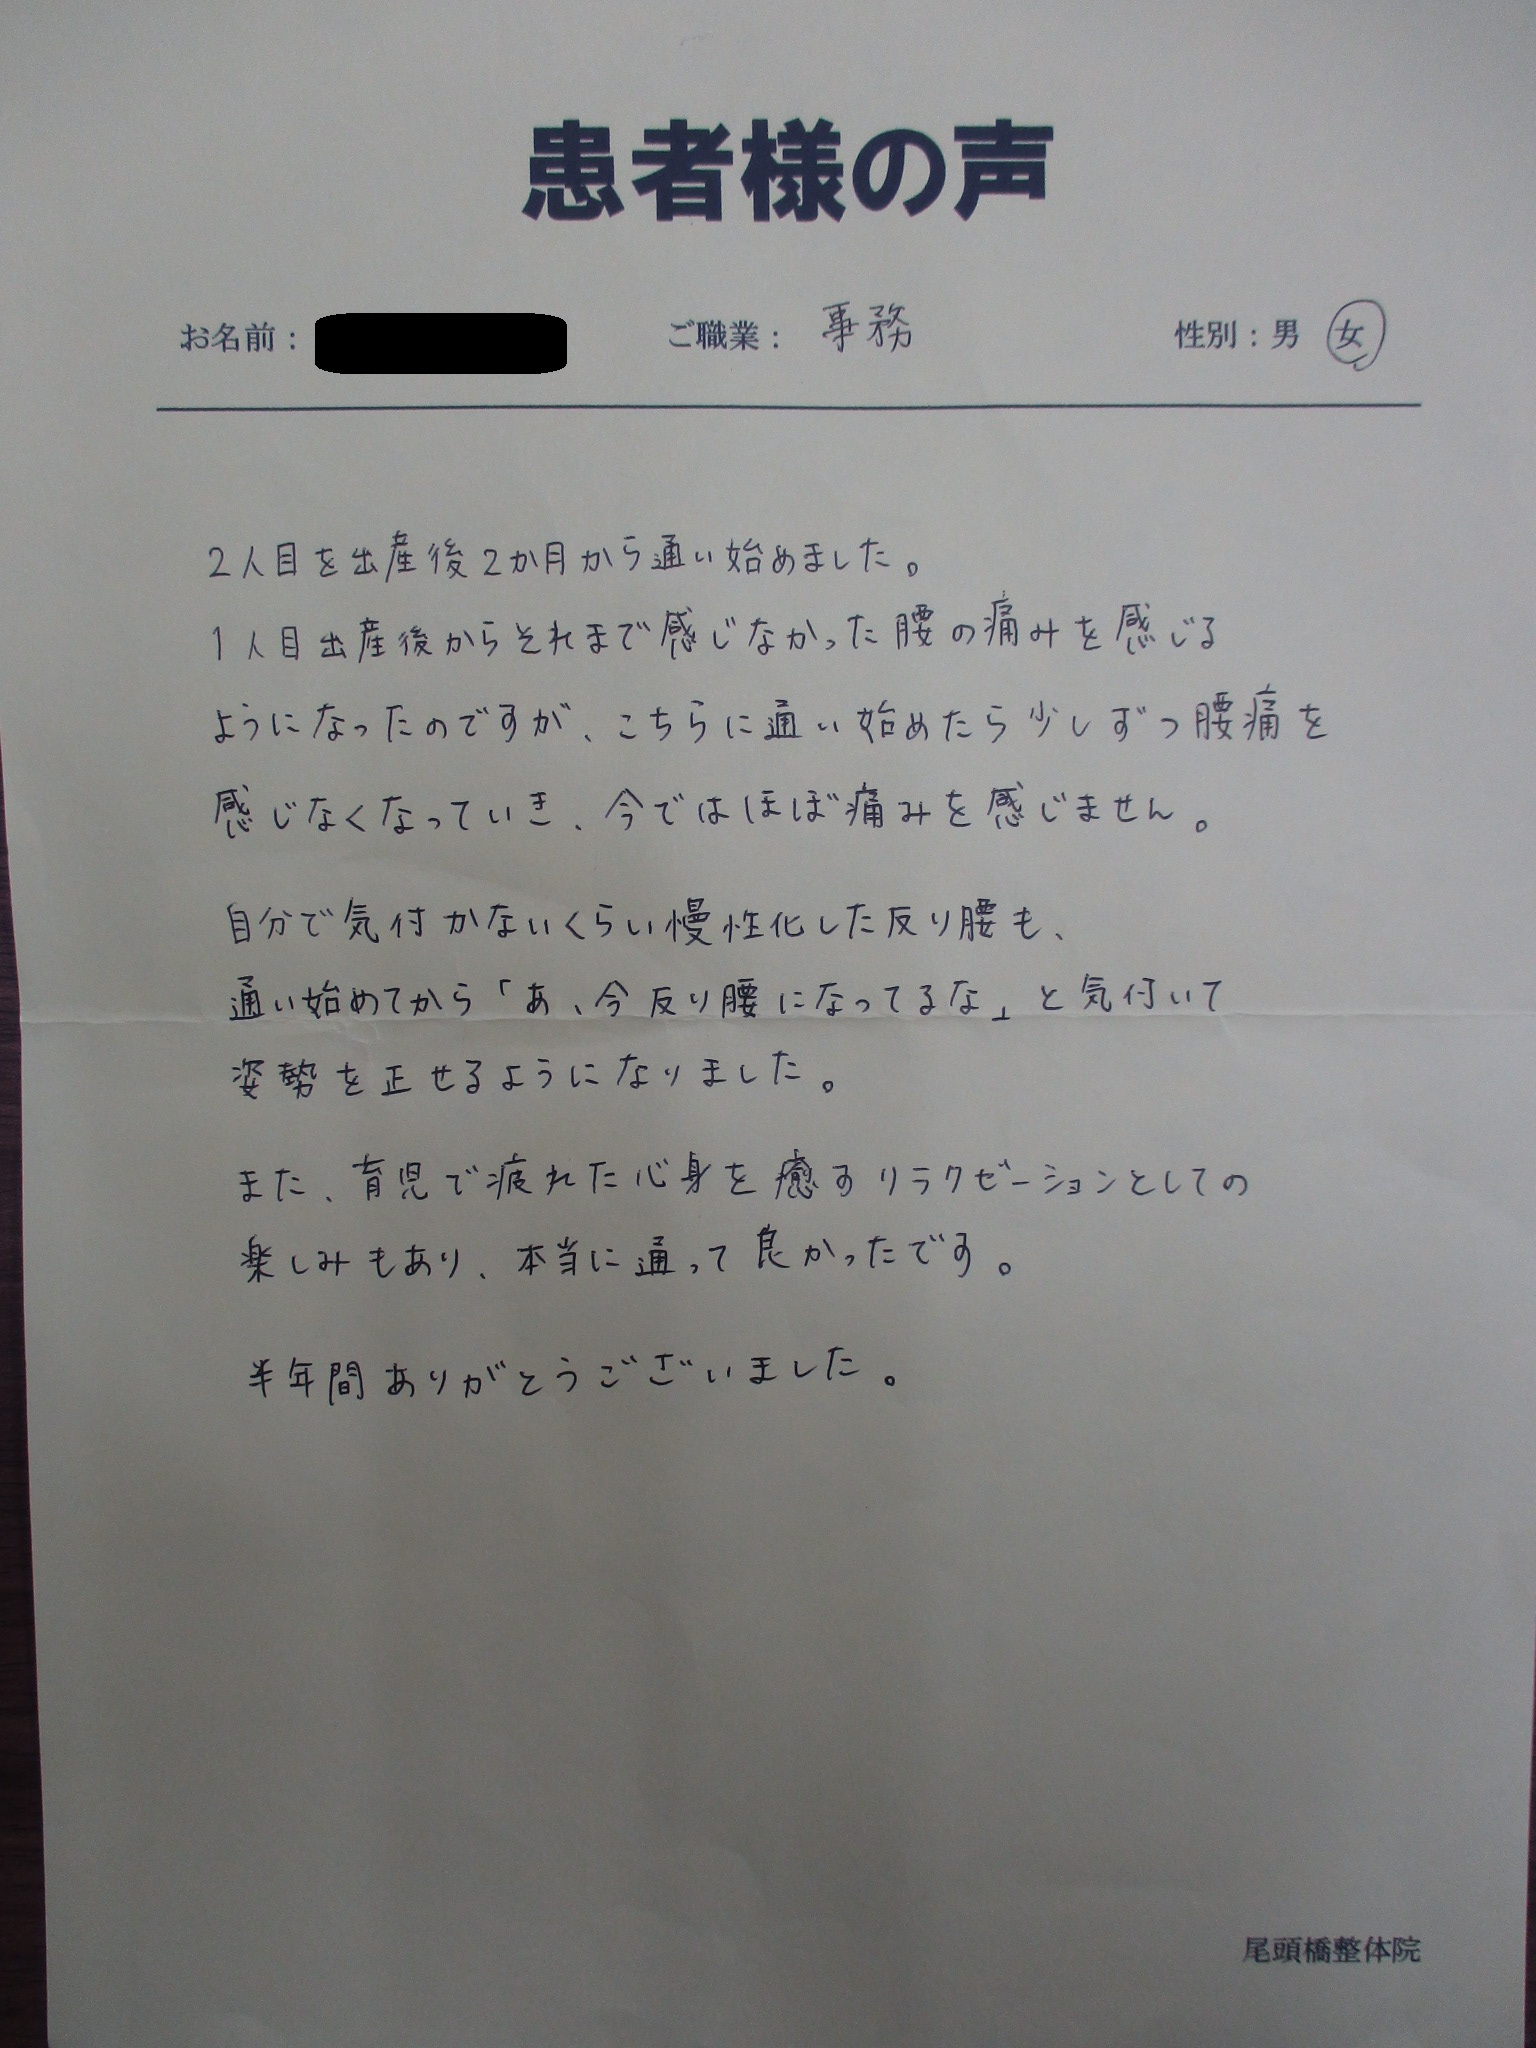 患者様の声
お名前： ご職業： 事務 性別：男 女
2人目を出産後2か月から通い始めました。
1人目出産後からそれまで感じなかった腰の痛みを感じる
ようになったのですが、こちらに通い始めたら少しずつ腰痛を
感じなくなっていき、今ではほぼ痛みを感じません。
自分で気付かないくらい慢性化した反り腰も、
通い始めてから「あ、今反り腰になってるな」と気付いて
姿勢を正せるようになりました。
また、育児で疲れた心身を癒すリラクゼーションとしての
楽しみもあり、本当に通って良かったです。
半年間ありがとうございました。
尾頭橋整体院